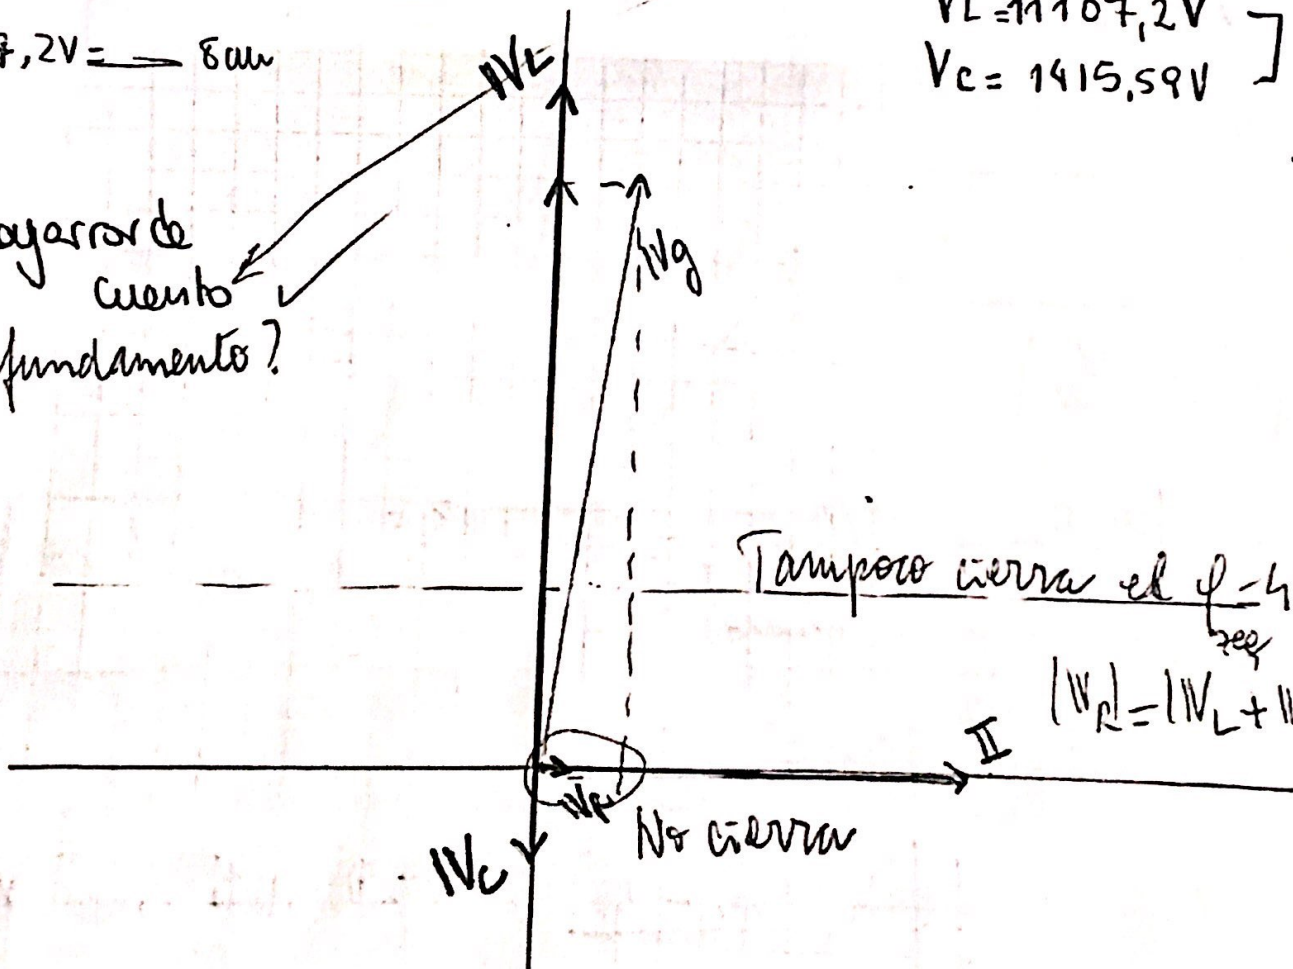 7,2V= → 8cm
VL=11107,2V
VC= 1415,59V
𝕍L
agarrar de
cuento
fundamento?
𝕍g
Tampoco cierra el φ
zeq
|𝕍R|=|𝕍L+𝕍
𝕀
𝕍R
No cierra
𝕍C